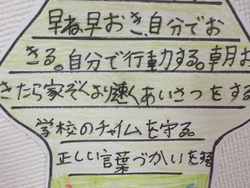 早ね早おき、自分でお
きる。自分で行動する。朝お
きたら家ぞくより速くあいさつをする
学校のチャイムを守る。
正しい言葉づかいを